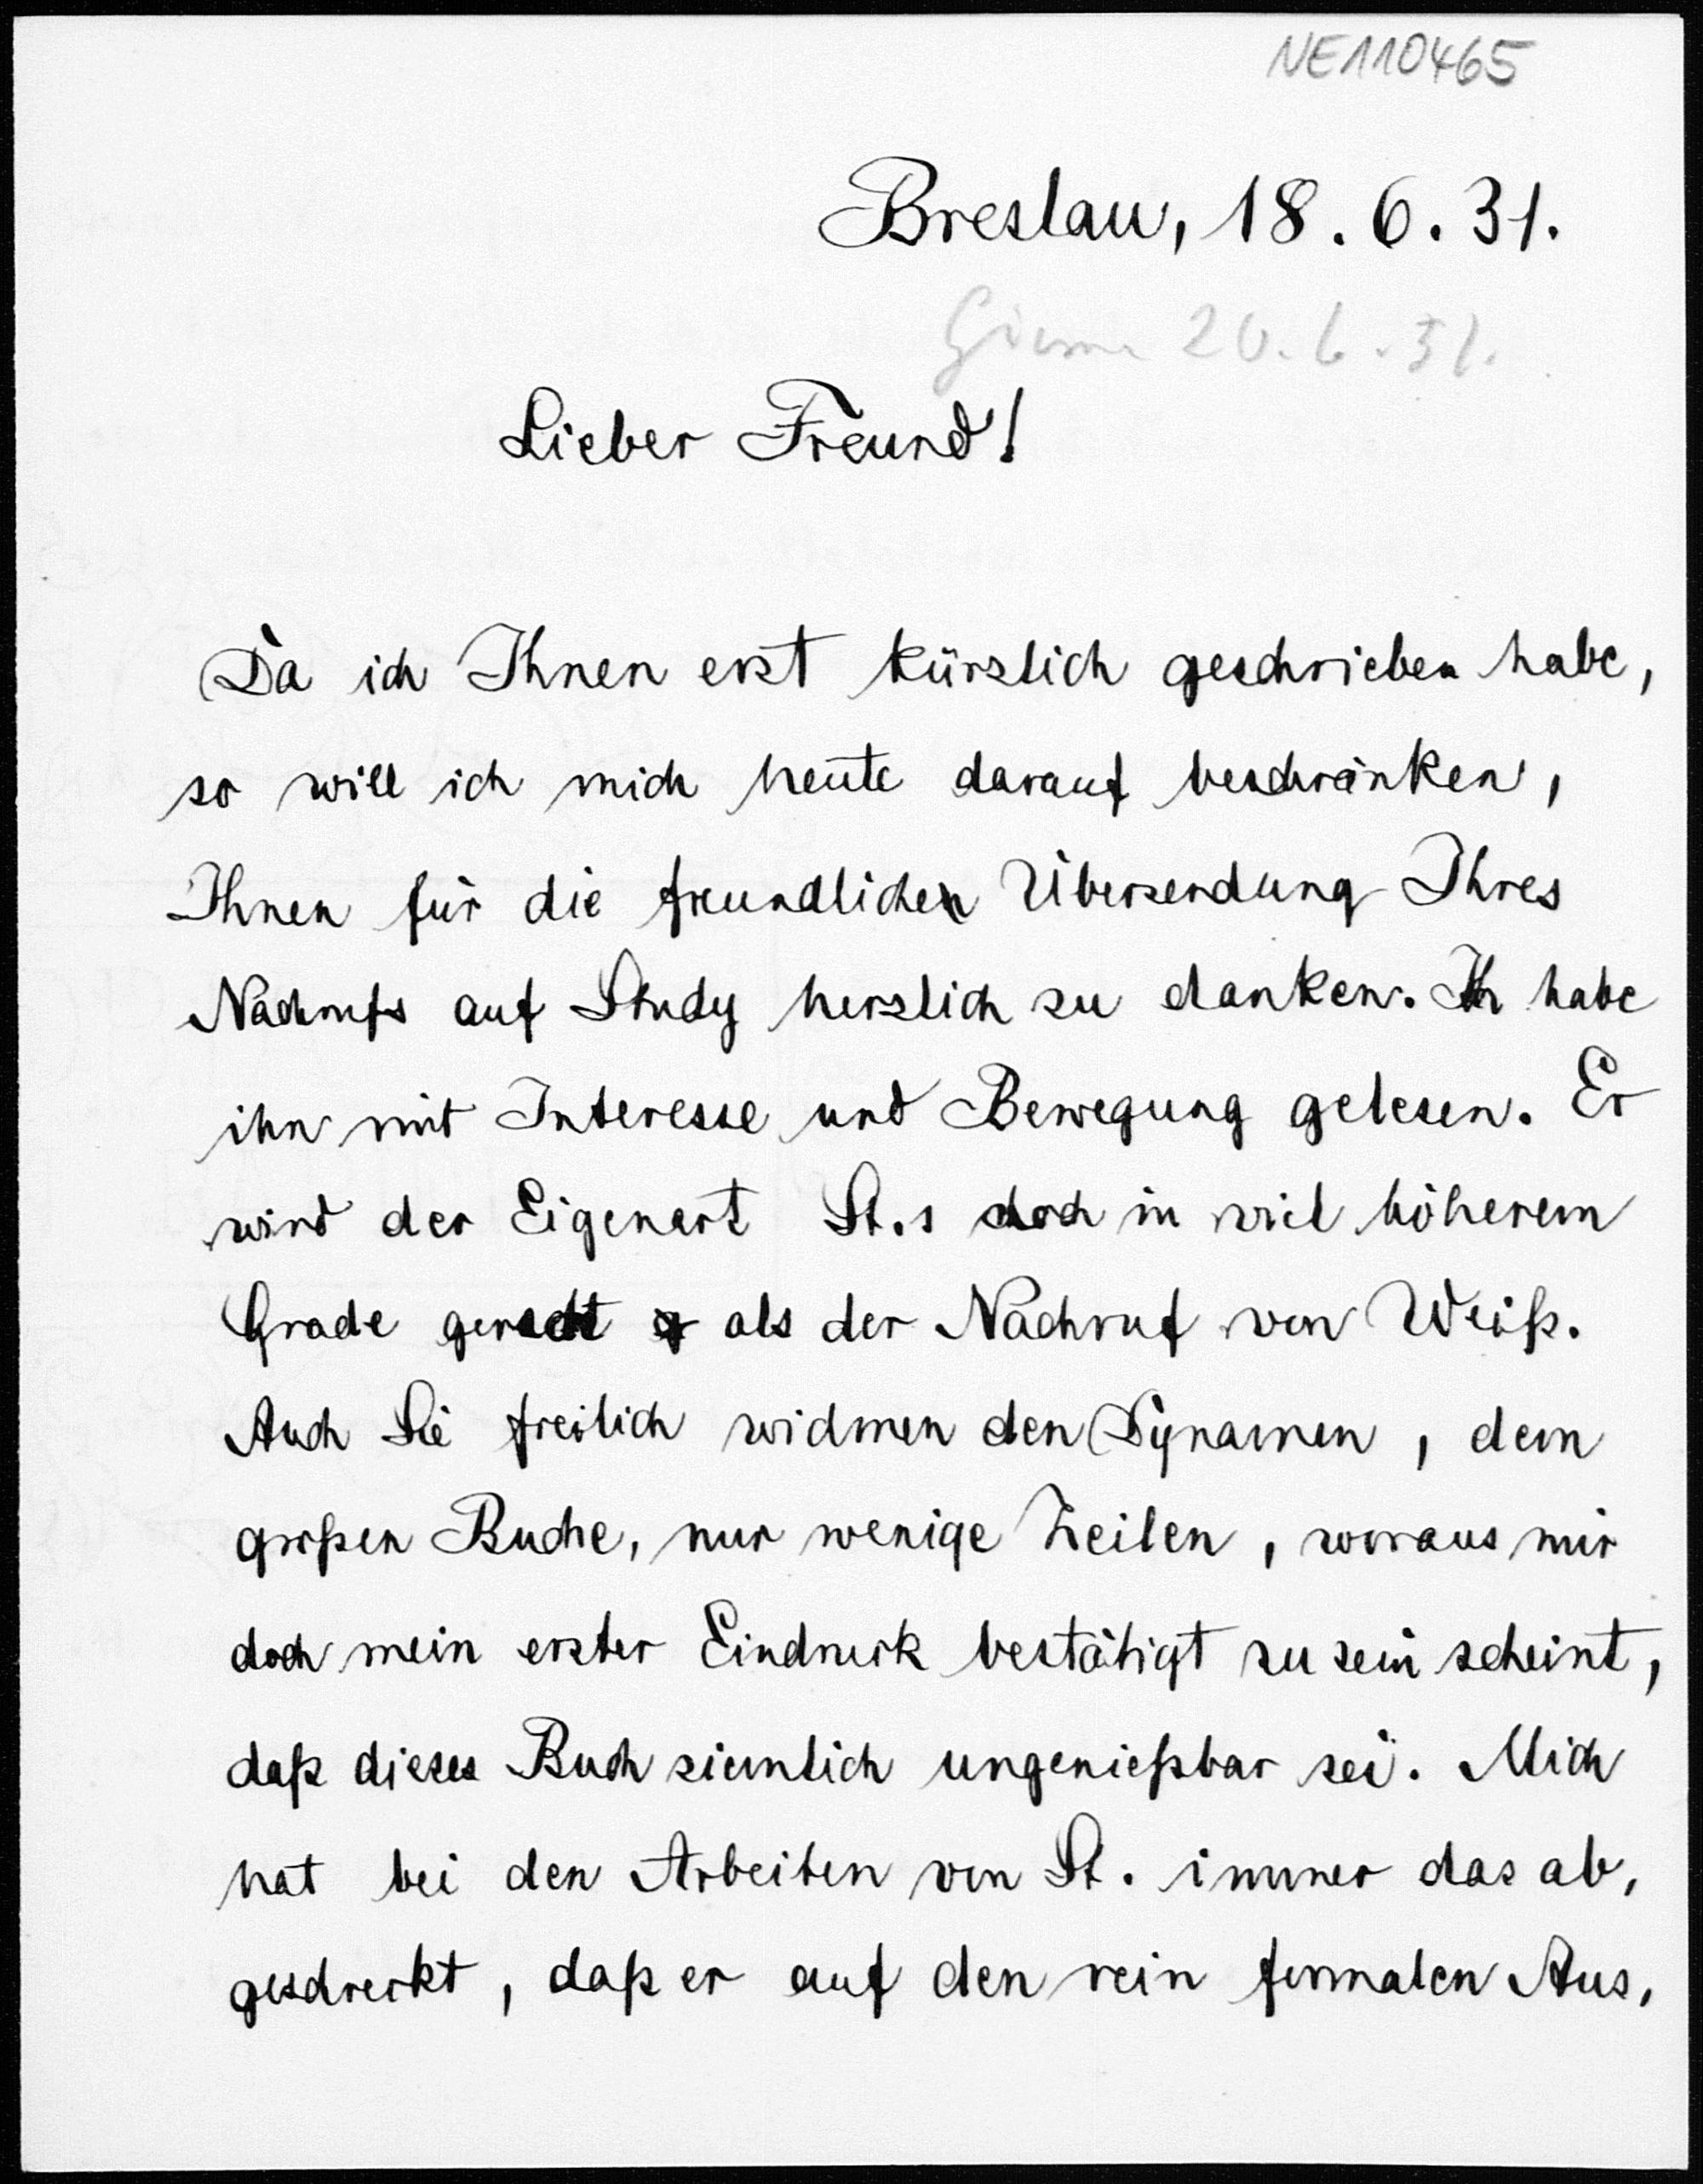 NE110465
Breslau, 18. 6. 31.
20. 6. 31.
Lieber Freund!
Da ich Ihnen erst kürzlich geschrieben habe,
so will ich mich heute darauf beschränken,
Ihnen für die freundlichen Übersendung Ihres
Nachrufs auf Study herzlich zu danken. Ich habe
ihn mit Interesse und Bewegung gelesen. Er
wird der Eigenart St.s doch in viel höherem
Grade gerecht als der Nachruf von Weiß.
Auch Sie freilich widmen den Dynamen, dem
großen Buche, nur wenige Zeilen, woraus mir
doch mein erster Eindruck bestätigt zu sein scheint,
daß dieses Buch ziemlich ungenießbar sei. Mich
hat bei den Arbeiten von St. immer das ab,
geschreckt, daß er auf den rein formalen Aus,